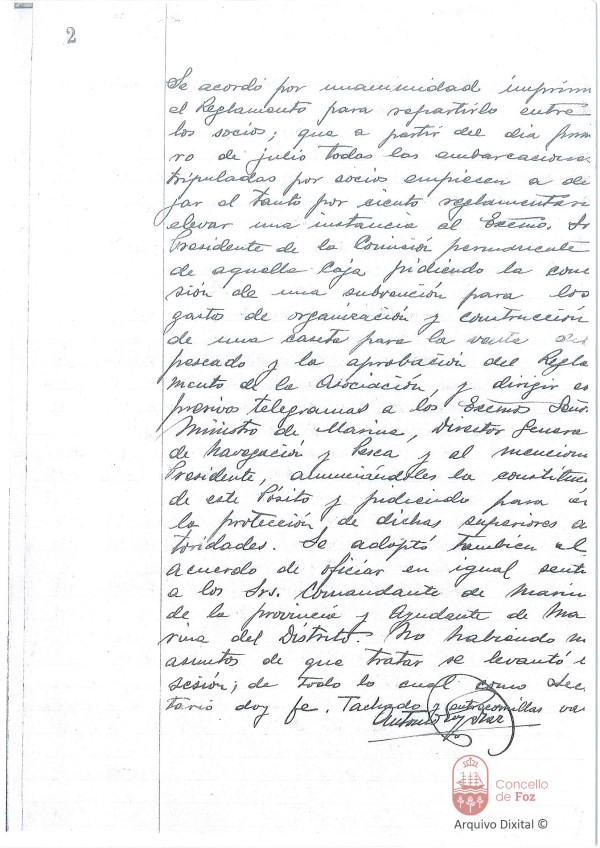 2
Se acordó por unanimidad imprimi
el Reglamento para repartirlo entre
los socios; que a partir del dia prim
ro de julio todas las embarcaciones
tripuladas por socios empiesen a de
jar el tanto por ciento reglamentari
elevar una instancia al Excmo. Sr
Presidente de la Comisión permanente
de aquella Caja pidiendo la conce
sión de una subvención para los
gastos de organización y construcción
de una caseta para la venta del
pescado y la aprobación del Regla
mento de la Asociación, y dirigir ex
presivos telegramas a los Excmos Seño
Ministro de Marina, Director Genera
de Navegación y Pesca y al mencion
Presidente, anunciándoles la constituc
de este Pósito y pidiendo para él
la protección de dichas superiores a
toridades. Se adoptó tambien el
acuerdo de oficiar en igual senti
a los Srs. Comandante de Marin
de la provincia y Ayudante de Ma
rina del Distrito. No habiendo m
asuntos de que tratar se levantó l
sesión; de todo lo cual como Sec
tario doy fe. Tachado y entrecomillas va
Antonio
Concello
de Foz
Arquivo Dixital ©